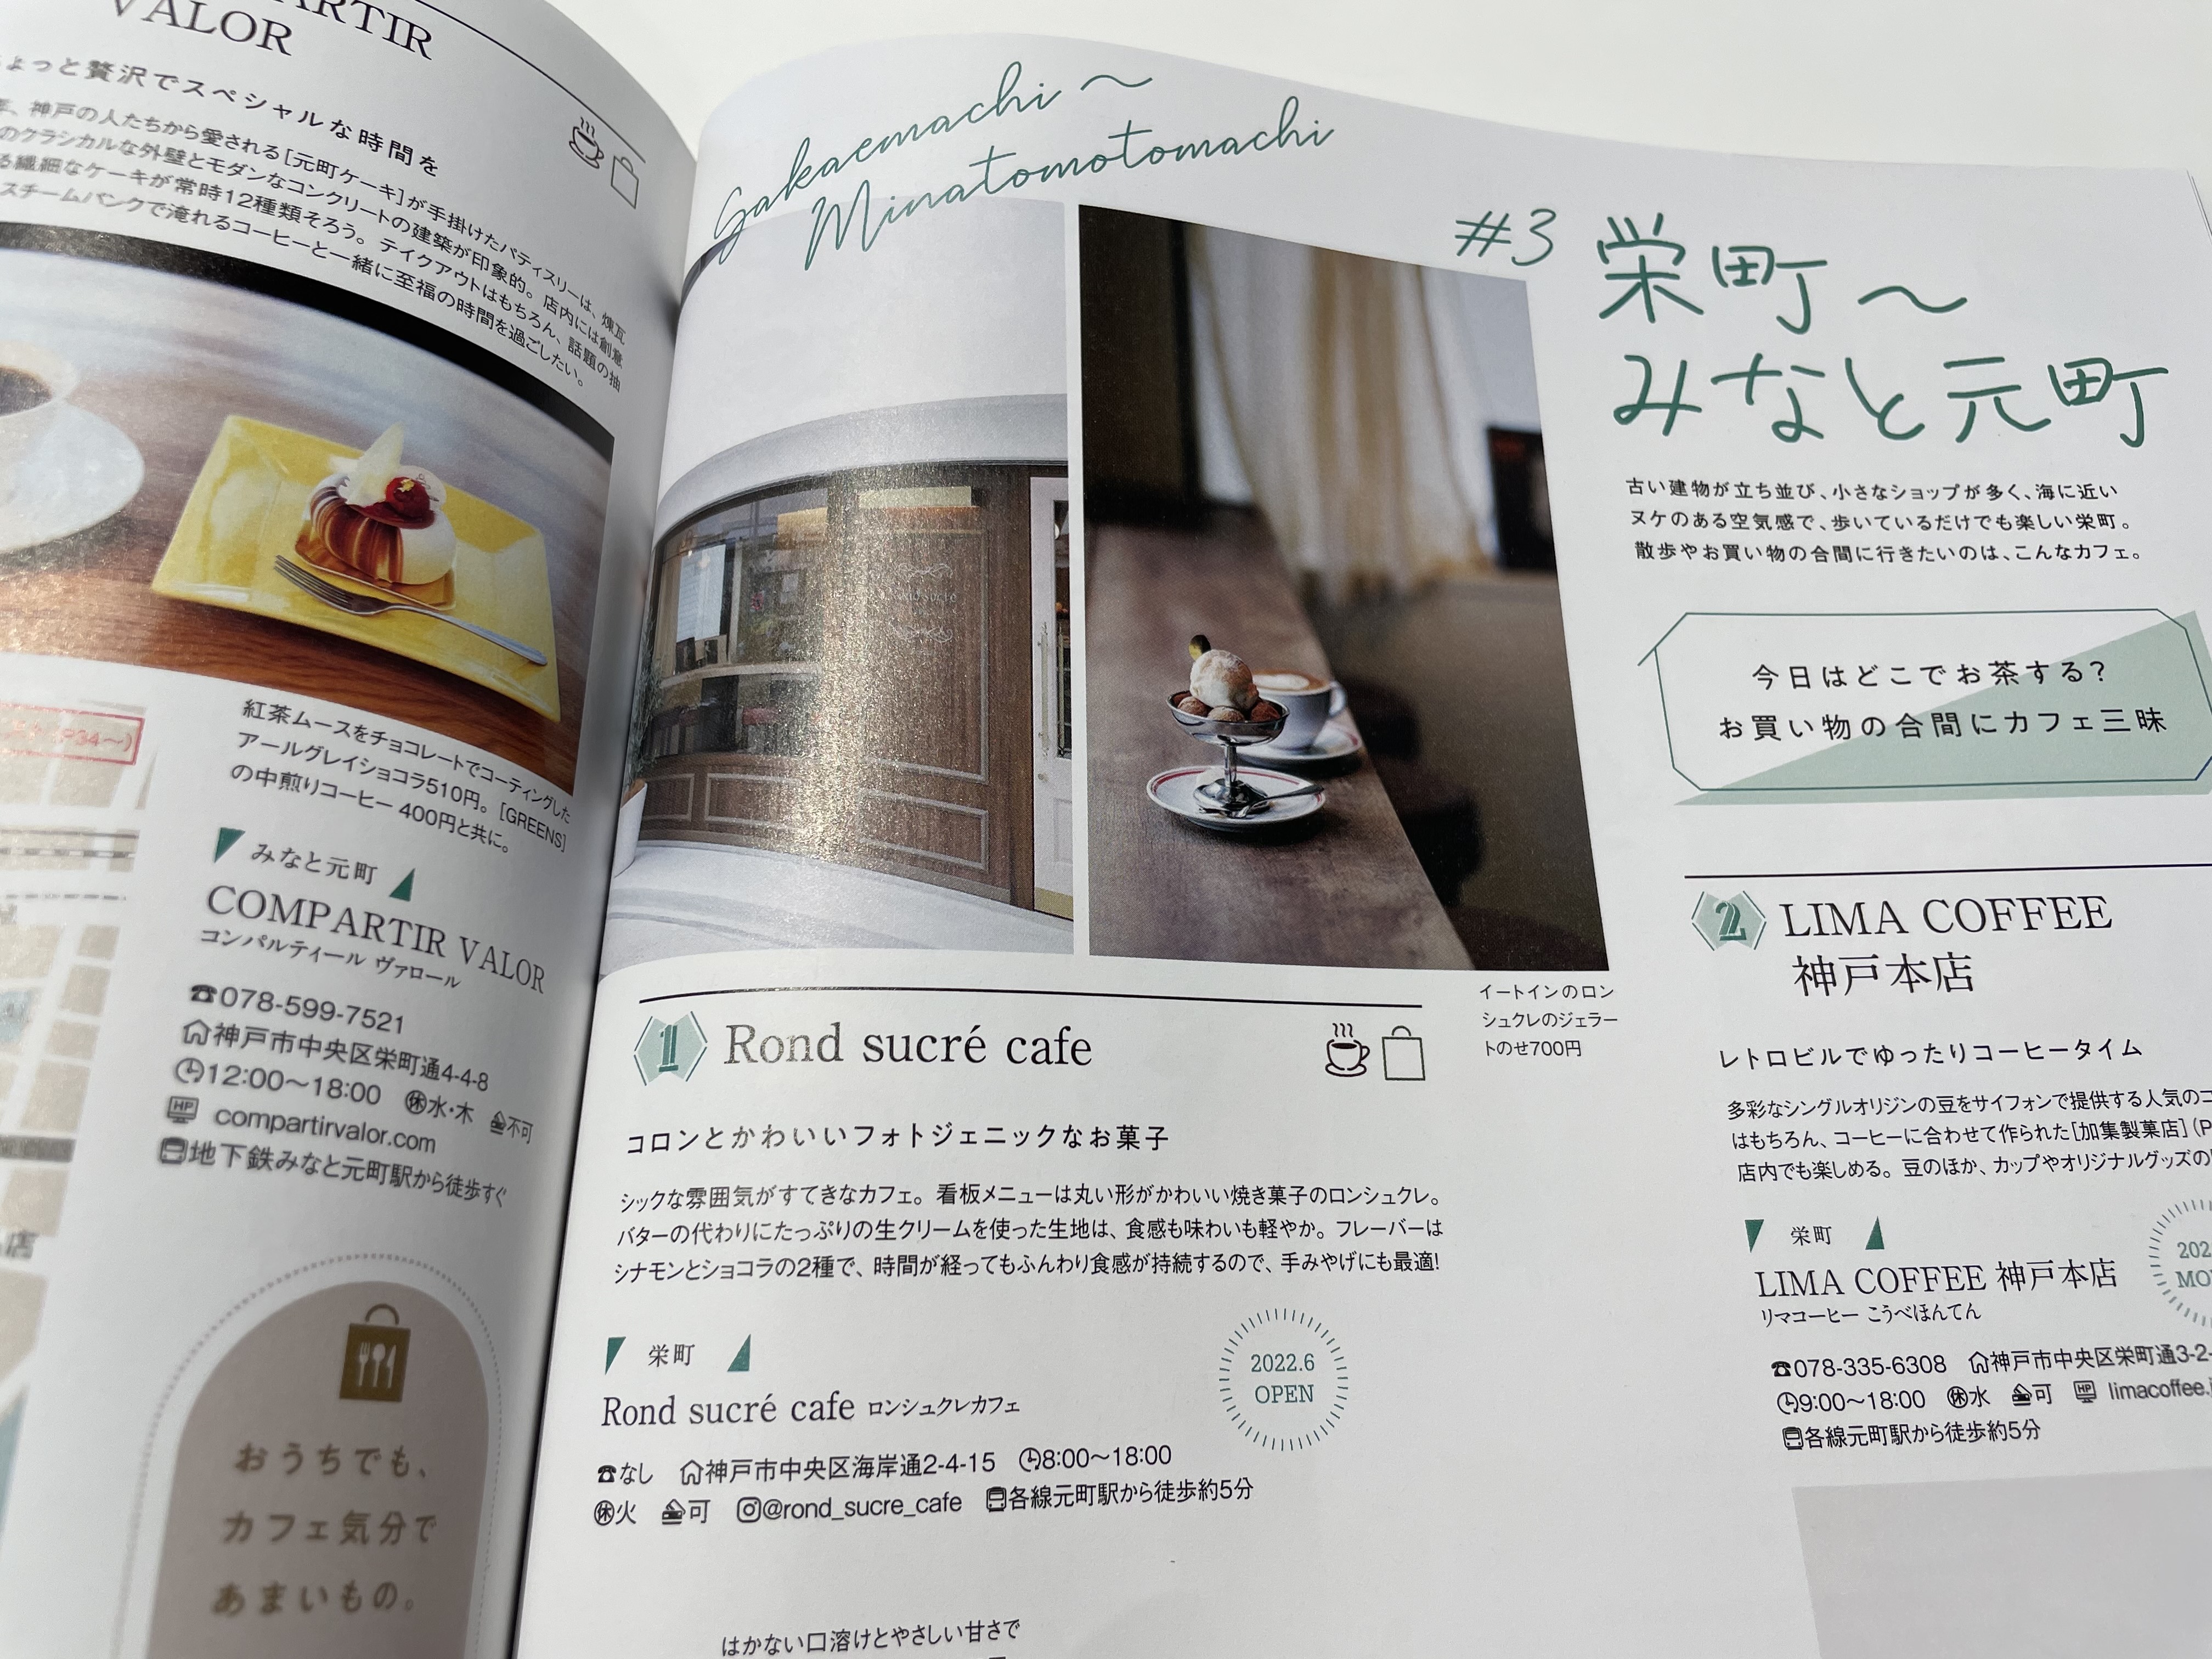 VALOR
ちょっと贅沢でスペシャルな時間を
神戸の人たちから愛される[元町ケーキ]が手掛けたパティスリーは、煉瓦
のクラシカルな外壁とモダンなコンクリートの建築が印象的。店内には創意
繊細なケーキが常時12種類そろう。テイクアウトはもちろん、話題の抽
スチームパンクで淹れるコーヒーと一緒に至福の時間を過ごしたい。
P34〜)
紅茶ムースをチョコレートでコーティングした
アールグレイショコラ510円。[GREENS]
の中煎りコーヒー 400円と共に。
みなと元町
COMPARTIR VALOR
コンパルティール ヴァロール
☎078-599-7521
神戸市中央区栄町通4-4-8
12:00〜18:00 ㊡水・木 不可
HP compartirvalor.com
地下鉄みなと元町駅から徒歩すぐ
店
おうちでも、
カフェ気分で
あまいもの。
Sakaemachi 〜
Minatomotomachi
#3 栄町〜
みなと元町
古い建物が立ち並び、小さなショップが多く、海に近い
ヌケのある空気感で、歩いているだけでも楽しい栄町。
散歩やお買い物の合間に行きたいのは、こんなカフェ。
今日はどこでお茶する?
お買い物の合間にカフェ三昧
イートインのロン
シュクレのジェラー
トのせ700円
1 Rond sucré cafe
コロンとかわいいフォトジェニックなお菓子
シックな雰囲気がすてきなカフェ。看板メニューは丸い形がかわいい焼き菓子のロンシュクレ。
バターの代わりにたっぷりの生クリームを使った生地は、食感も味わいも軽やか。フレーバーは
シナモンとショコラの2種で、時間が経ってもふんわり食感が持続するので、手みやげにも最適!
栄町
Rond sucré cafe ロンシュクレカフェ
2022.6
OPEN
☎なし 神戸市中央区海岸通2-4-15 8:00〜18:00
㊡火 可 @rond_sucre_cafe 各線元町駅から徒歩約5分
はかない口溶けとやさしい甘さで
2 LIMA COFFEE
神戸本店
レトロビルでゆったりコーヒータイム
多彩なシングルオリジンの豆をサイフォンで提供する人気のコ
はもちろん、コーヒーに合わせて作られた[加集製菓店](P
店内でも楽しめる。豆のほか、カップやオリジナルグッズの
栄町
LIMA COFFEE 神戸本店
リマコーヒー こうべほんてん
202
MO
☎078-335-6308 神戸市中央区栄町通3-2-
9:00〜18:00 ㊡水 可 HP limacoffee.
各線元町駅から徒歩約5分